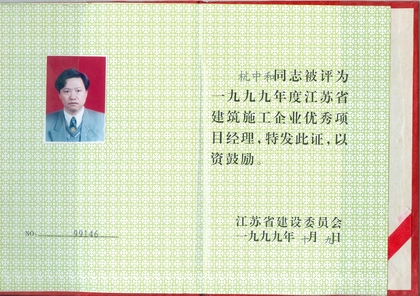 杭中和同志被评为
一九九九年度江苏省
建筑施工企业优秀项
目经理，特发此证，以
资鼓励。
江苏省建设委员会
一九九九年十月九日
NO: 99146